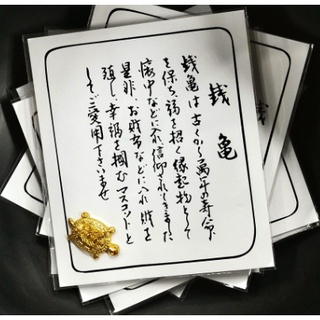 銭亀
銭亀は古くから萬年の寿命
を保ち福を招く縁起物として
懐中などに入れ信仰されてきました
是非、お財布などに入れ、財を
殖し、幸福を掴むマスコットと
してご愛用下さいませ